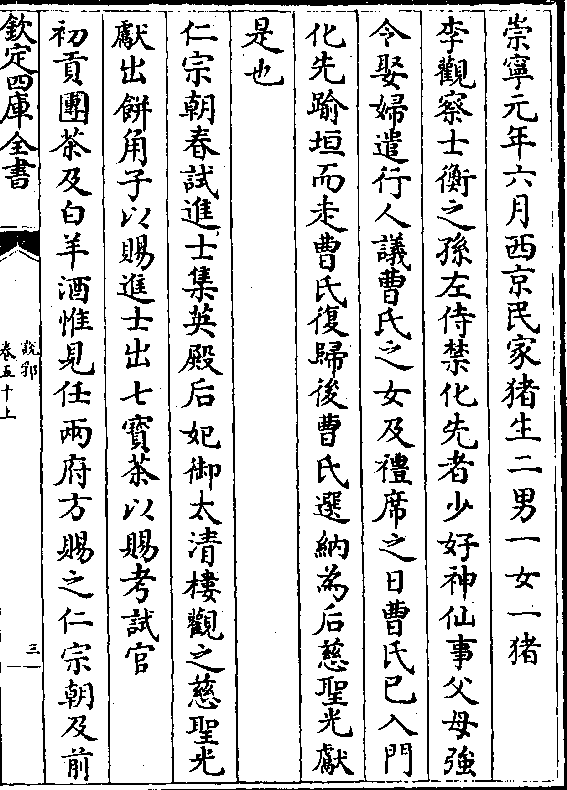 崇寧元年六月西京民家猪生二男一女一猪
李觀察士衡之孫左侍禁化先者少好神仙事父母強
令娶婦遣行人議曹氏之女及禮席之日曹氏已入門
化先踰垣而走曹氏復歸後曹氏選納為后慈聖光獻
是也
仁宗朝春試進士集英殿后妃御太清樓觀之慈聖光
獻出餅角子以賜進士出七寳茶以賜考試官
初貢團茶及白羊酒惟見任兩府方賜之仁宗朝及前
欽定四庫全書
說郛
卷五十上
三